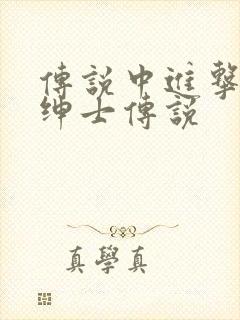 傳說中進擊
紳士傳說
真學真